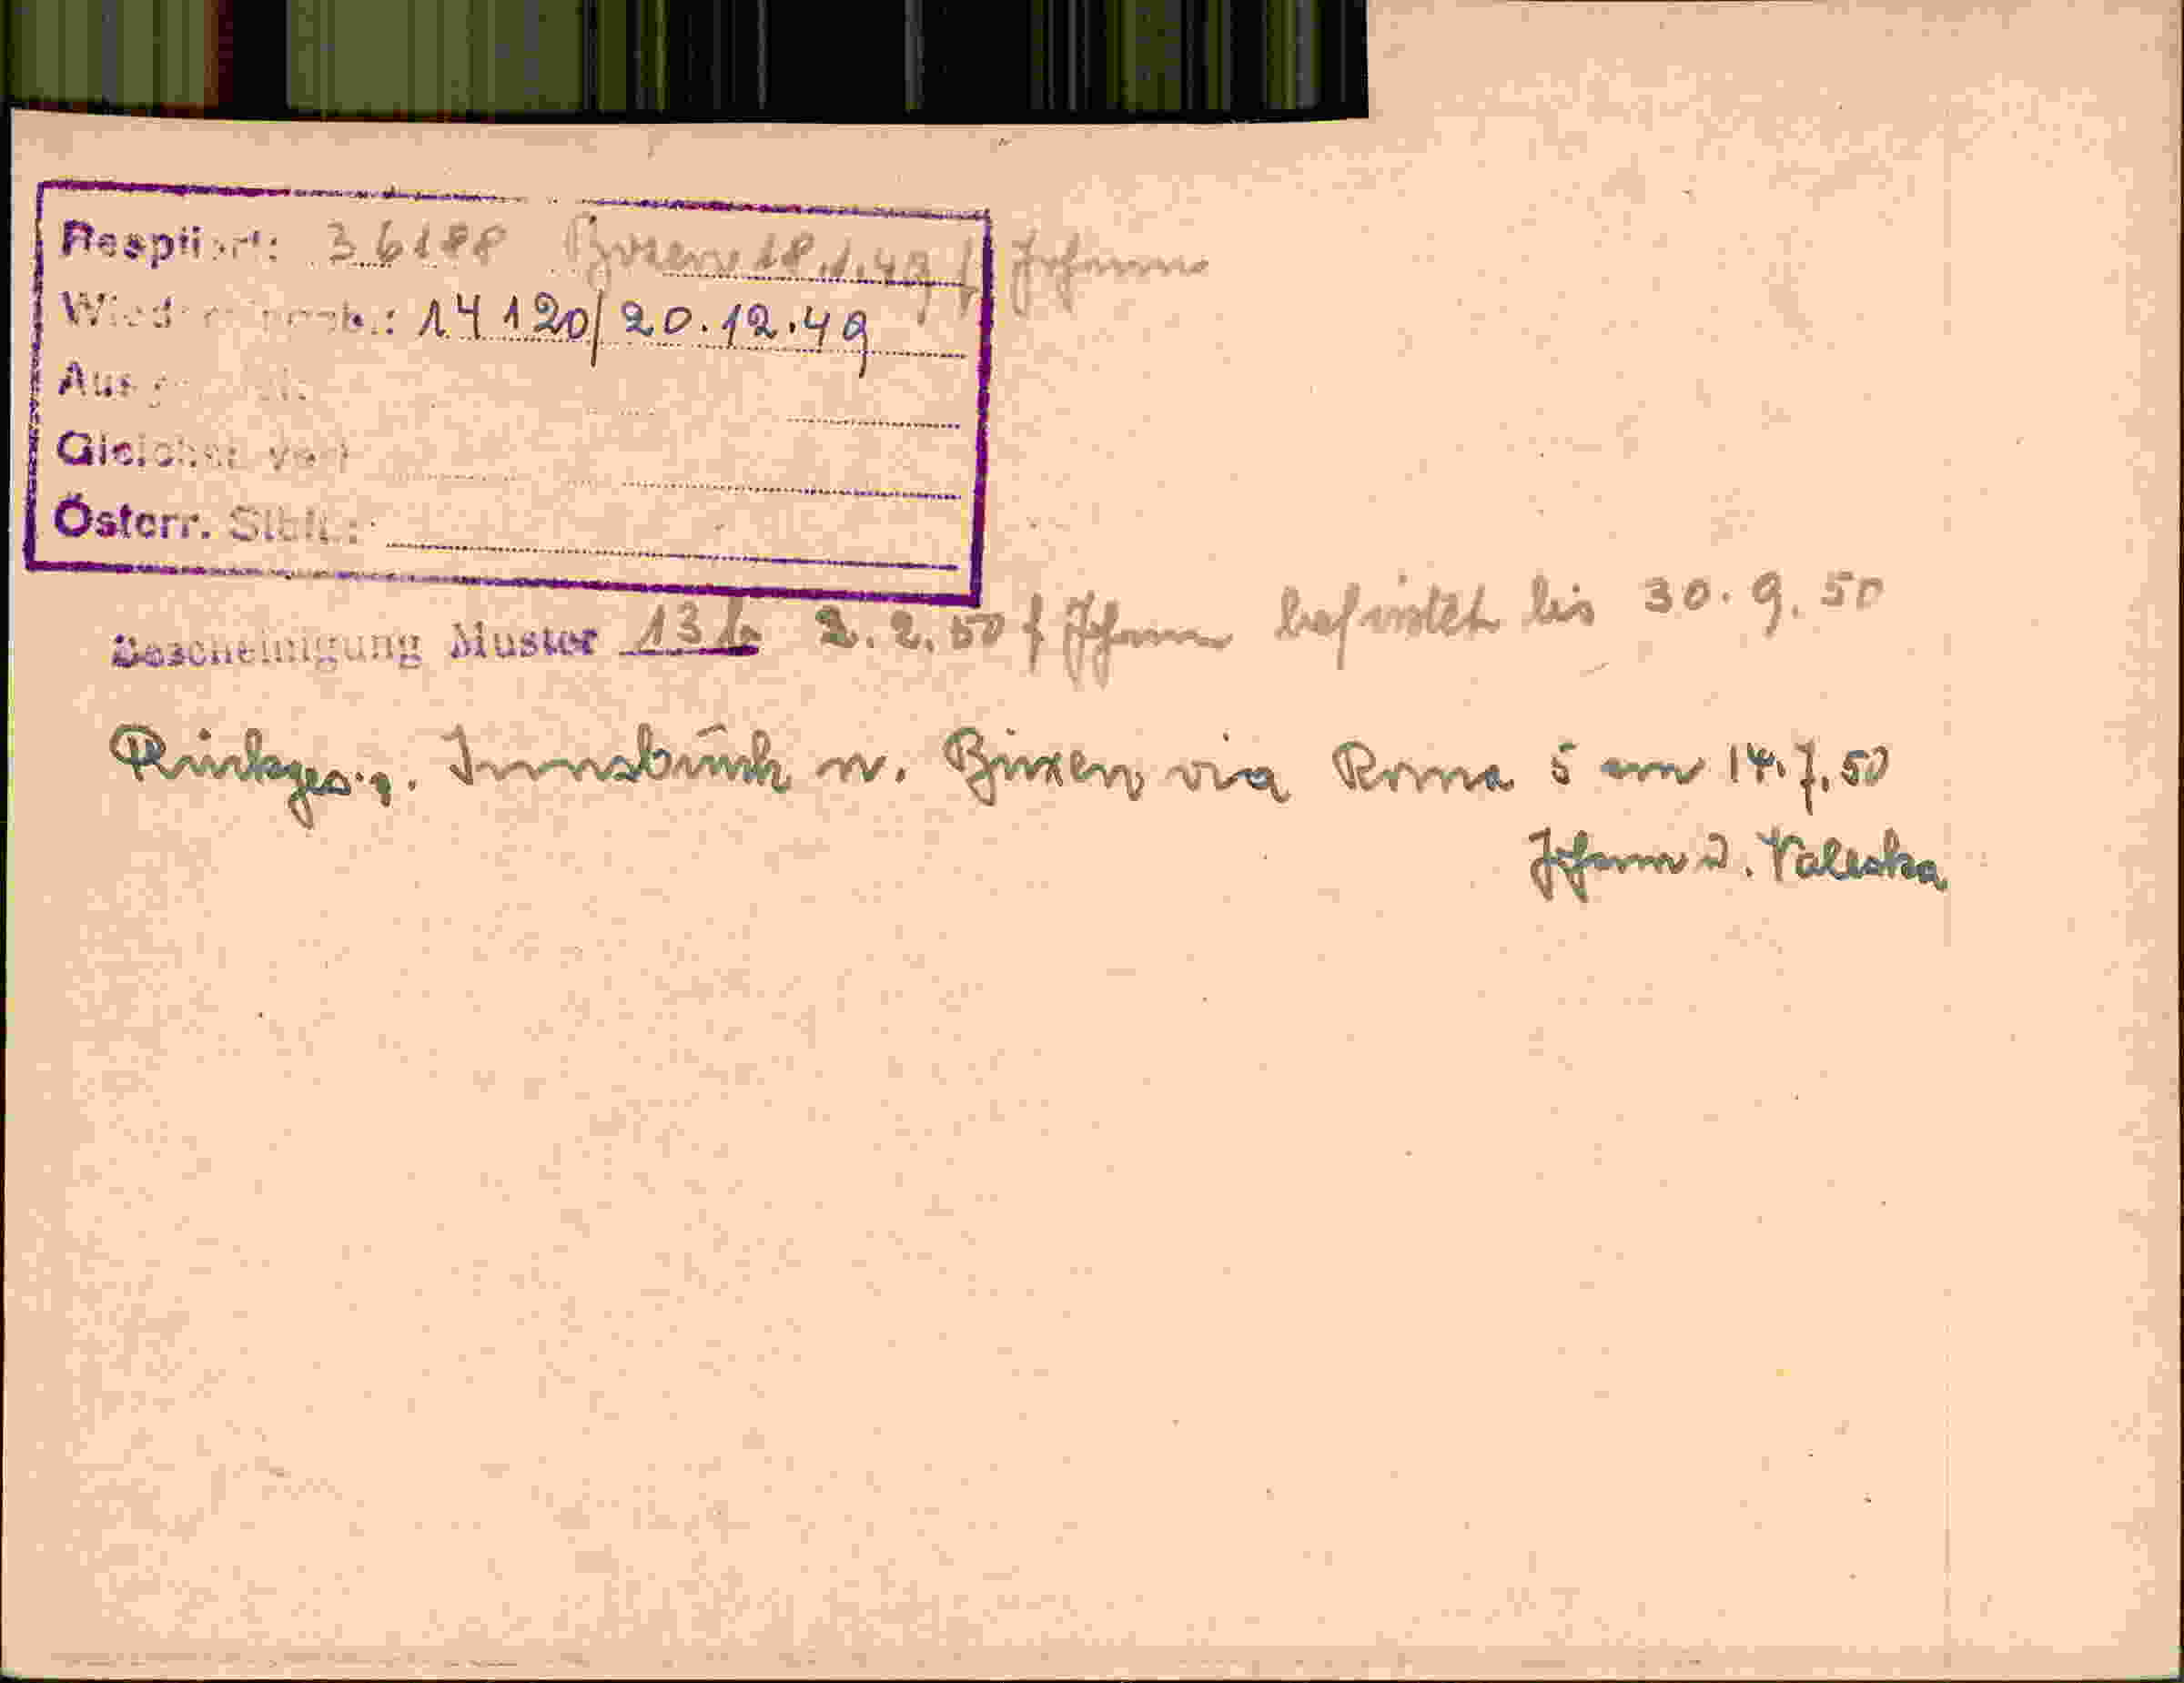 Resptiert: 36188 Bozen 18.1.49 f Johann
14120/20.12.49
Österr. Stbü.:
Bescheinigung Muster 13b 2.2.50 f Johann befristet bis 30.9.50
Innsbruck n. Brixen via Roma 5 am 14.7.50
Johann u. Valeska